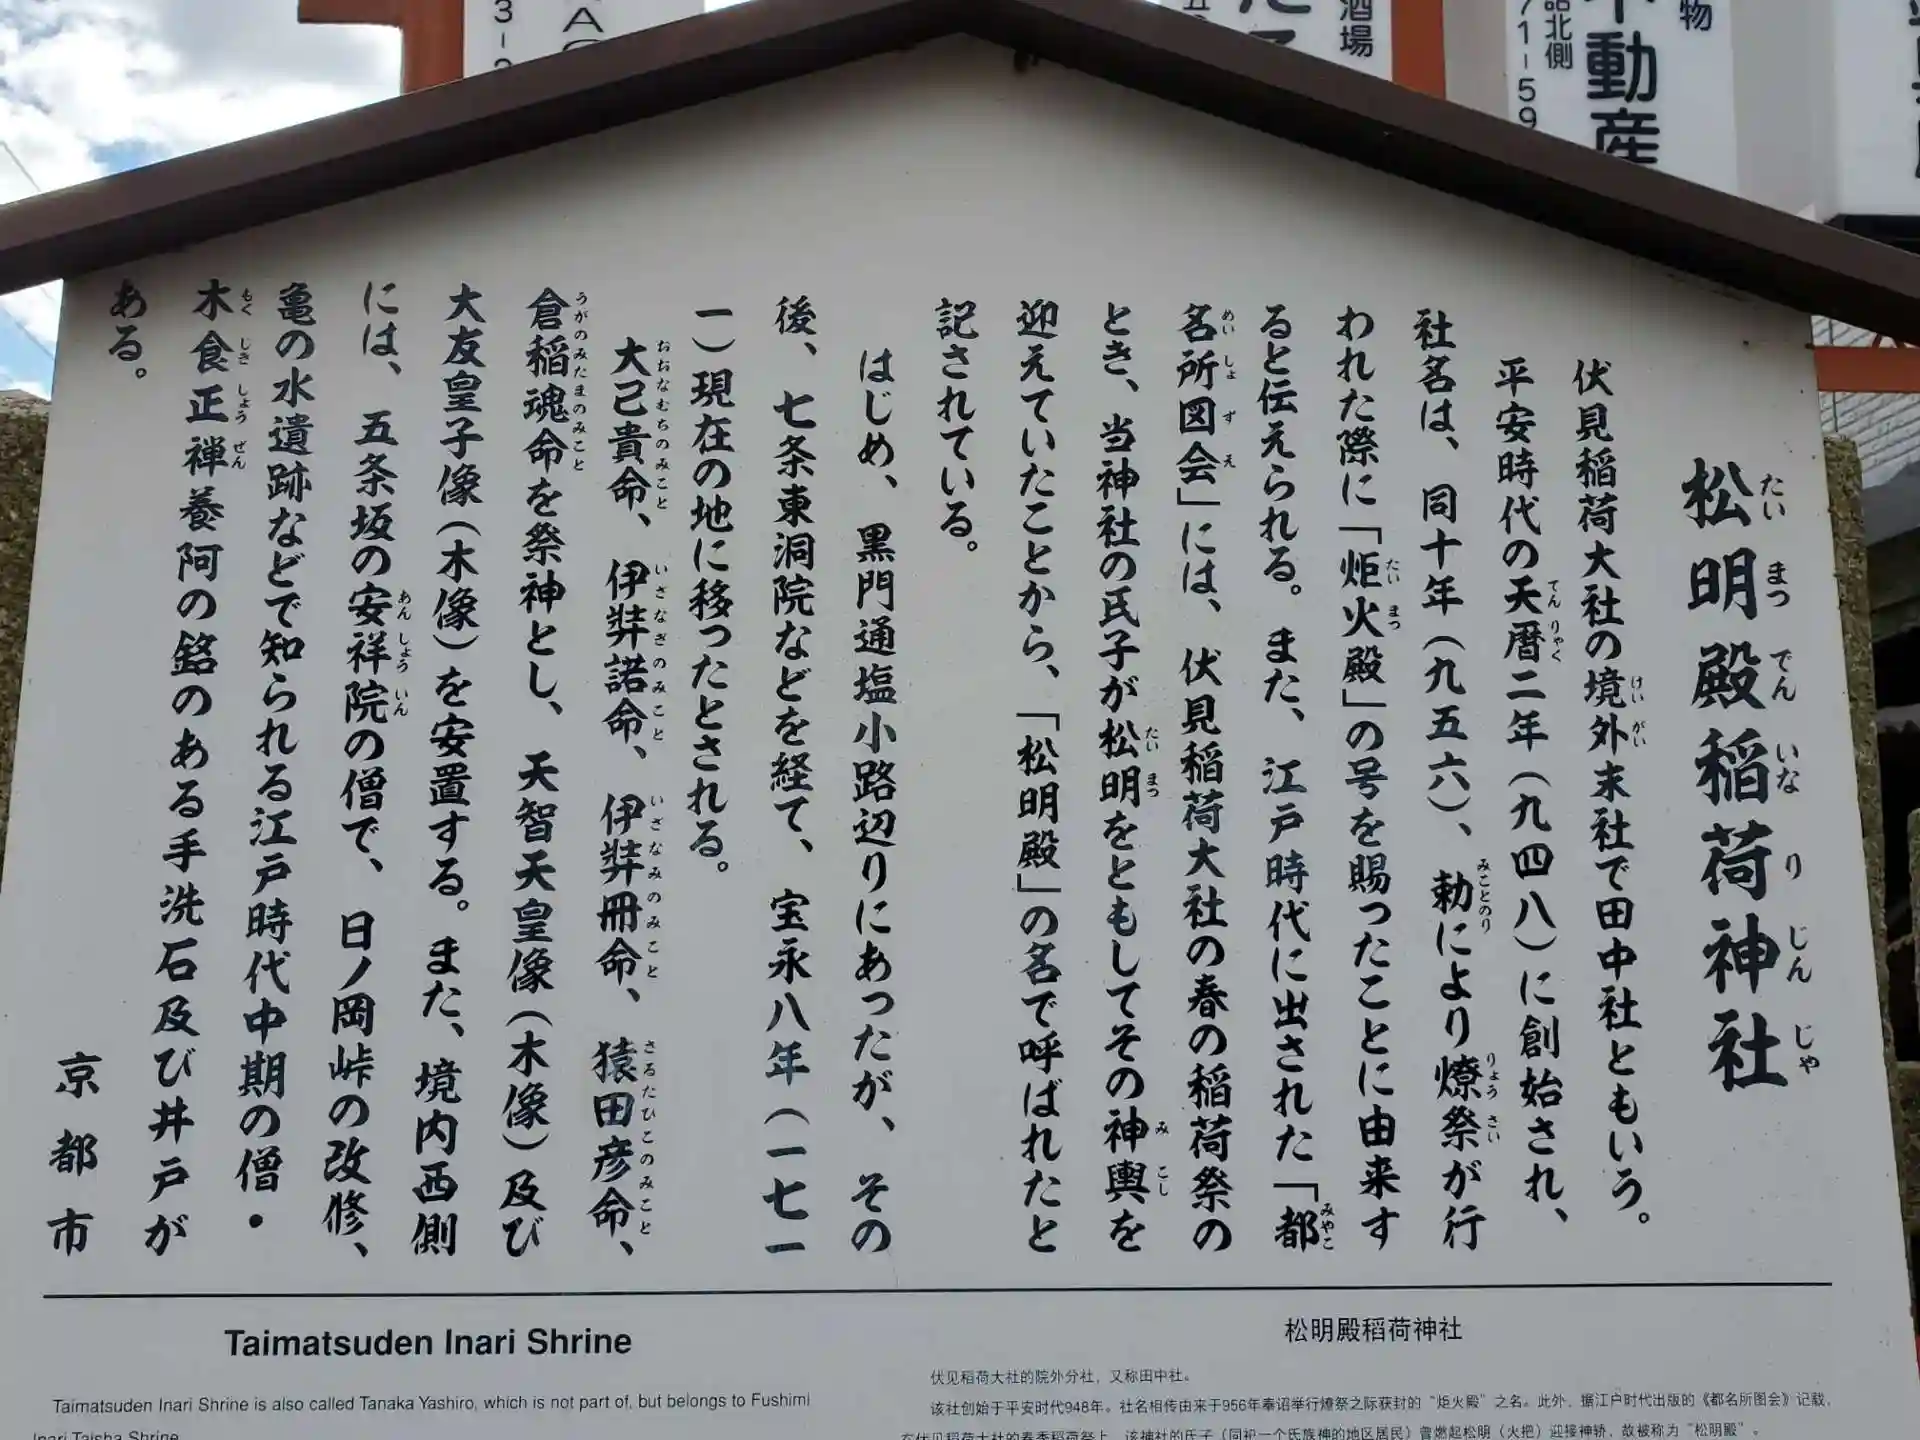 松明殿稲荷神社
たいまつでんいなりじんじゃ
伏見稲荷大社の境外末社で田中社ともいう。
平安時代の天暦二年（九四八）に創始され、
社名は、同十年（九五六）、勅により燎祭が行
われた際に「炬火殿」の号を賜ったことに由来す
ると伝えられる。また、江戸時代に出された「都
名所図会」には、伏見稲荷大社の春の稲荷祭の
とき、当神社の氏子が松明をともしてその神輿を
迎えていたことから、「松明殿」の名で呼ばれたと
記されている。
はじめ、黒門通塩小路辺りにあったが、その
後、七条東洞院などを経て、宝永八年（一七一
一）現在の地に移ったとされる。
大己貴命、伊弉諾命、伊弉冊命、猿田彦命、
倉稲魂命を祭神とし、天智天皇像（木像）及び
大友皇子像（木像）を安置する。また、境内西側
には、五条坂の安祥院の僧で、日ノ岡峠の改修、
亀の水遺跡などで知られる江戸時代中期の僧・
木食正禅養阿の銘のある手洗石及び井戸が
ある。
京都市
Taimatsuden Inari Shrine
Taimatsuden Inari Shrine is also called Tanaka Yashiro, which is not part of, but belongs to Fushimi
Inari Taisha Shrine.
松明殿稻荷神社
伏见稻荷大社的院外分社，又称田中社。
该社创始于平安时代948年。社名相传由来于956年奉诏举行燎祭之际获封的“炬火殿”之名。此外，据江户时代出版的《都名所图会》记载，
在伏见稻荷大社的春季稻荷祭上，该神社的氏子（同祀一个氏族神的地区居民）曾燃起松明（火把）迎接神轿，故被称为“松明殿”。
酒場
動産
北側
71-59
物